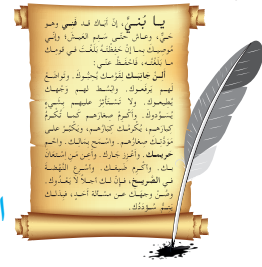 يـا بُنَـيَّ، إنَّ أبَاكَ قـد فَنِـيَ وهـو
حَـيٌّ، وعـاشَ حتَّـى سَـئِمَ العَيـشَ؛ وإنِّـي
مُوصِيـكَ بمـا إنْ حَفِظتَـهُ بَلَغْـتَ في قَومِـكَ
ما بَلَغْتُـه، فاحْفَـظْ عنِّـي:
ألِـنْ جَانِبَـكَ لِقَوْمِـكَ يُحِبُّـوكَ. وتَوَاضَـعْ
لَهـم يَرفَعـوكَ. وابْسُـطْ لهـم وَجْهَـكَ
يُطِيعـوكَ. ولا تَسْـتَأثِرْ عليهـم بشَـيْءٍ
يُسَـوِّدوكَ. وأكْـرِمْ صِغارَهـم كمـا تُكْـرِمُ
كِبارَهـم، يُكْرِمْـكَ كِبَارُهـم، ويَكْبُـرْ علـى
مَوَدَّتـكَ صِغارُهـم. واسْـمَحْ بمَالِـكَ. واحْـمِ
حَرِيمَـك. وأعْـزِزْ جَـارَكَ. وأعِـنْ مَـنِ اسْـتَعَانَ
بـكَ. وأكْـرِمْ ضَيفَـكَ. وأسْـرِعِ النَّهْضَـةَ
فـي الصَّرِيـخِ، فـإنَّ لـكَ أجَـلًا لا يَعْـدُوكَ.
وصُـنْ وجهَـكَ عـن مَسْـألَةِ أحَـدٍ، فبِذلـكَ
يَتِـمُّ سُـؤدَدُكَ.